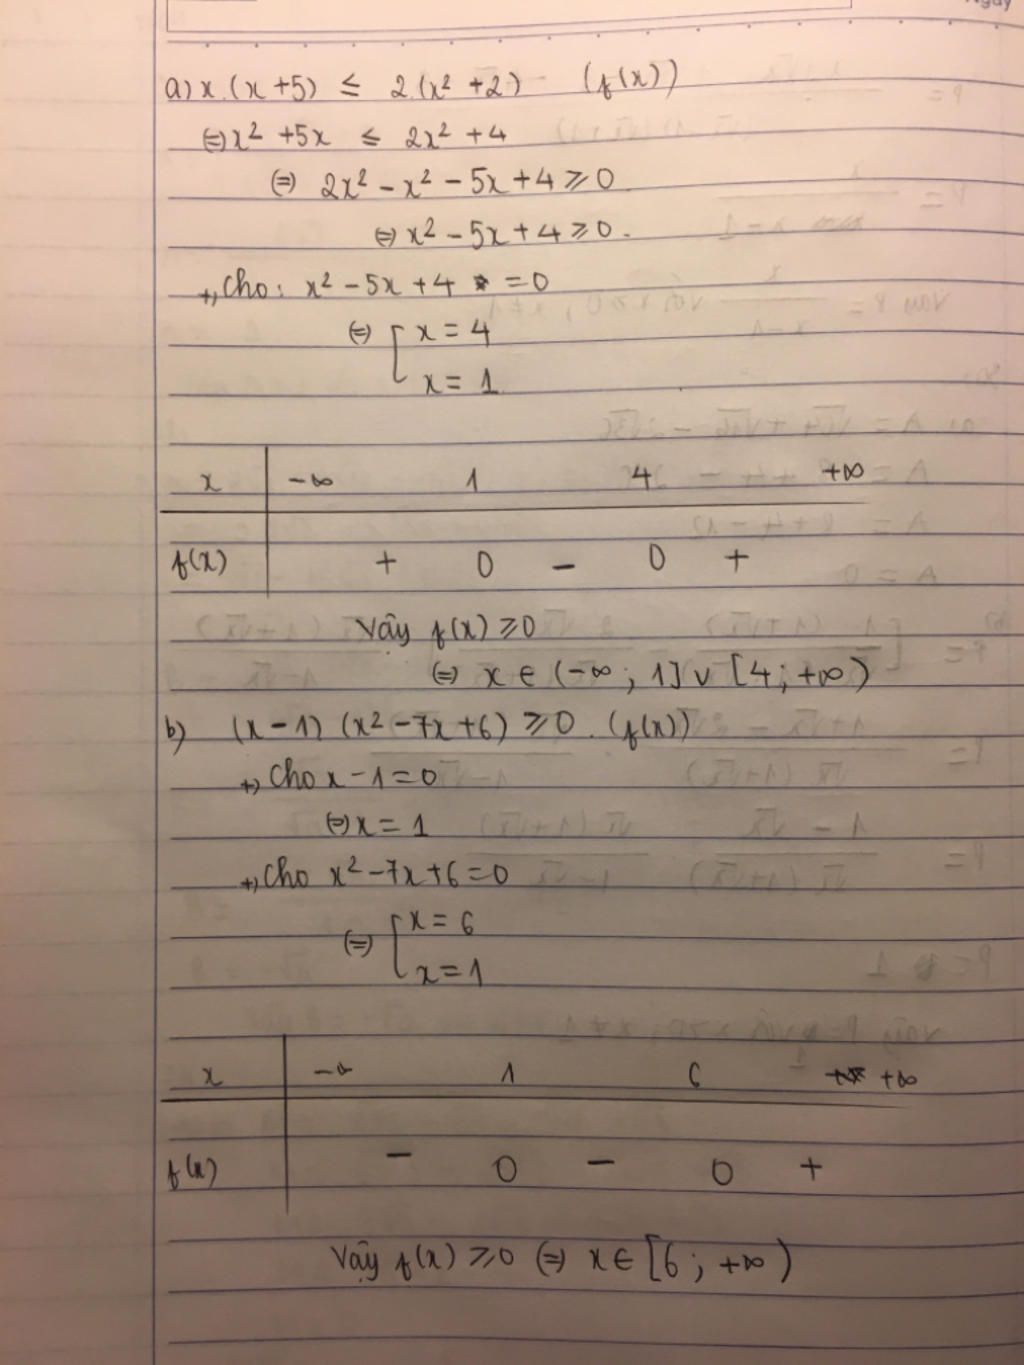 Ngày
a) x.(x+5) ≤ 2.(x² +2) (f(x))
(=) x² +5x ≤ 2x² +4
(=) 2x² – x² – 5x + 4 ⩾ 0
(=) x² – 5x + 4 ⩾ 0.
+, Cho: x² – 5x + 4 = 0
(=) [ x = 4
x = 1
x –∞ 1 4 +∞
f(x) + 0 – 0 +
Vậy f(x) ⩾ 0
(=) x ∈ (–∞ ; 1] ∪ [4 ; +∞)
b) (x – 1) (x² – 7x + 6) ⩾ 0. (f(x))
+, Cho x – 1 = 0
(=) x = 1
+, Cho x² – 7x + 6 = 0
(=) [ x = 6
x = 1
x –∞ 1 6 +∞
f(x) – 0 – 0 +
Vậy f(x) ⩾ 0 (=) x ∈ [6 ; +∞)